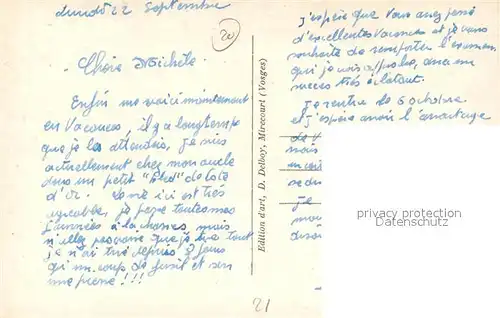 Lundi 22 Septembre
20
Chère Michèle
Enfin me voici maintenant
en Vacances, il y a longtemps
que je les attendais, je suis
actuellement chez mon oncle
dans un petit "bled" de Côte
d'Or. La vie ici est très
agréable, je passe toutes mes
journées à la chasse, mais
n'allez pas croire que je tue tout
je n'ai tiré depuis 3 jours
qu'un coup de fusil et sur
une pierre !!!
J'espère que Vous avez passé
d'excellentes Vacances et je vous
souhaite de remporter l'examen
qui je crois approche, avec un
succès très éclatant.
Je rentre le 6 octobre
et j'espère avoir l'avantage
de V
mais
Je
Edition d'art, D. Delboy, Mirecourt (Vosges)
privacy protection
Datenschutz
21